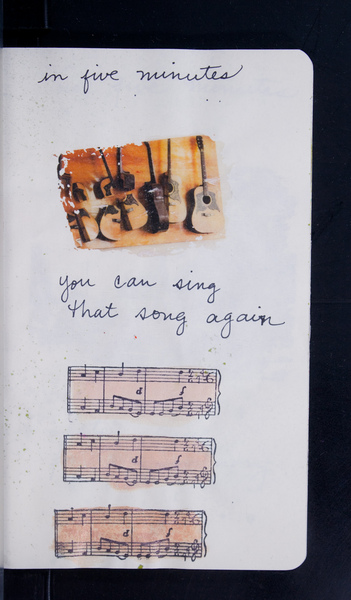 in five minutes
you can sing
that song again